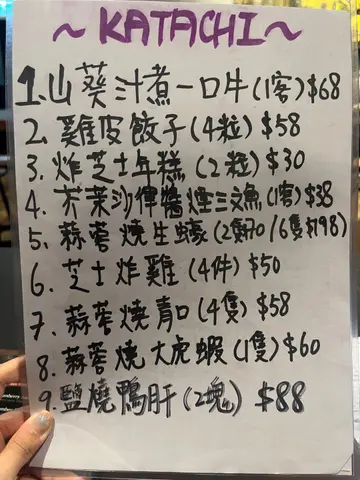 ~KATACHI~
1.山葵汁煮一口牛(1客)$68
2.雞皮餃子(4粒)$58
3.炸芝士年糕(2粒)$30
4.芥茉沙律醬煙三文魚(1客)$38
5.蒜蓉燒生蠔(2隻70/6隻$198)
6.芝士炸雞(4件)$50
7.蒜蓉燒青口(4隻)$58
8.蒜蓉燒大虎蝦(1隻)$60
9.鹽燒鴨肝(2塊)$88